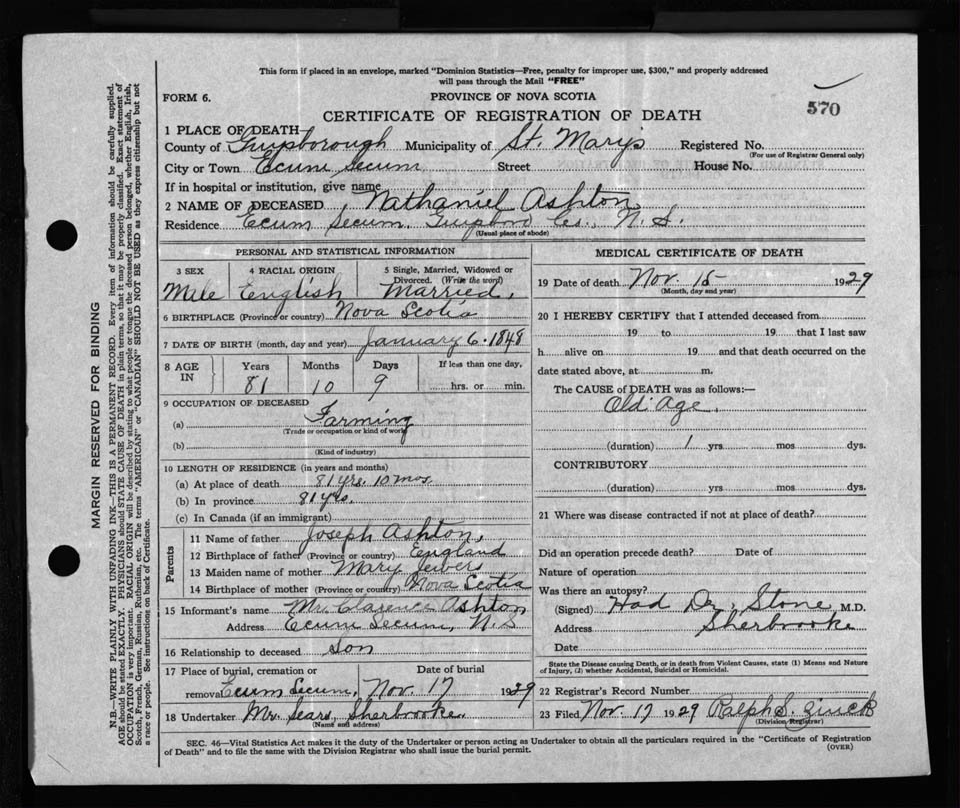 This form if placed in an envelope, marked "Dominion Statistics—Free, penalty for improper use, $300," and properly addressed
will pass through the Mail "FREE"
FORM 6.
PROVINCE OF NOVA SCOTIA
570
CERTIFICATE OF REGISTRATION OF DEATH
1 PLACE OF DEATH
County of Guysborough Municipality of St. Mary's Registered No.
(For use of Registrar General only)
City or Town Ecum Secum Street House No.
If in hospital or institution, give name
2 NAME OF DECEASED Nathaniel Ashton
Residence Ecum Secum, Co., N. S.
(Usual place of abode)
PERSONAL AND STATISTICAL INFORMATION
3 SEX 4 RACIAL ORIGIN 5 Single, Married, Widowed or Divorced. (Write the word)
Male English Married.
6 BIRTHPLACE (Province or country) Nova Scotia
7 DATE OF BIRTH (month, day and year) January 6. 1848
8 AGE IN Years Months Days If less than one day,
81 10 9 hrs. or min.
9 OCCUPATION OF DECEASED
(a) Farming
(Trade or occupation or kind of work)
(b)
(Kind of industry)
10 LENGTH OF RESIDENCE (in years and months)
(a) At place of death 81 yrs. 10 mos.
(b) In province 81 yrs.
(c) In Canada (if an immigrant)
Parents
11 Name of father Joseph Ashton,
12 Birthplace of father (Province or country) England
13 Maiden name of mother Mary Jewers
14 Birthplace of mother (Province or country) Nova Scotia
15 Informant's name Mr. Clarence Ashton
Address Ecum Secum, N.S
16 Relationship to deceased Son
17 Place of burial, cremation or Date of burial
removal Ecum Secum, Nov. 17 1929
18 Undertaker Mr. Sears, Sherbrooke.
(Name and address)
MEDICAL CERTIFICATE OF DEATH
19 Date of death Nov. 15 1929
(Month, day and year)
20 I HEREBY CERTIFY that I attended deceased from
19 to 19 that I last saw
h alive on 19 and that death occurred on the
date stated above, at m.
The CAUSE of DEATH was as follows:—
Old Age.
(duration) 1 yrs mos dys.
CONTRIBUTORY
(duration) yrs mos dys.
21 Where was disease contracted if not at place of death?
Did an operation precede death? Date of
Nature of operation
Was there an autopsy?
(Signed) Had Dr. Stone, M.D.
Address Sherbrooke
State the Disease causing Death, or in death from Violent Causes, state (1) Means and Nature
of Injury, (2) whether Accidental, Suicidal or Homicidal.
22 Registrar's Record Number
23 Filed Nov. 17 1929 Ralph S. Zinck
(Division Registrar)
SEC. 46—Vital Statistics Act makes it the duty of the Undertaker or person acting as Undertaker to obtain all the particulars required in the "Certificate of Registration
of Death" and to file the same with the Division Registrar who shall issue the burial permit.
(OVER)
MARGIN RESERVED FOR BINDING
N.B.—WRITE PLAINLY WITH UNFADING INK—THIS IS A PERMANENT RECORD. Every item of information should be carefully supplied.
AGE should be stated EXACTLY. PHYSICIANS should STATE CAUSE OF DEATH in plain terms, so that it may be properly classified. Exact statement of
OCCUPATION is very important. RACIAL ORIGIN will be described by stating to what people or tongue the deceased person belonged, whether English, Irish,
Scotch, French, German, Russian, Ruthenian, etc. The terms "AMERICAN" or "CANADIAN" SHOULD NOT BE USED as they express citizenship but not
a race or people. See instructions on back of Certificate.